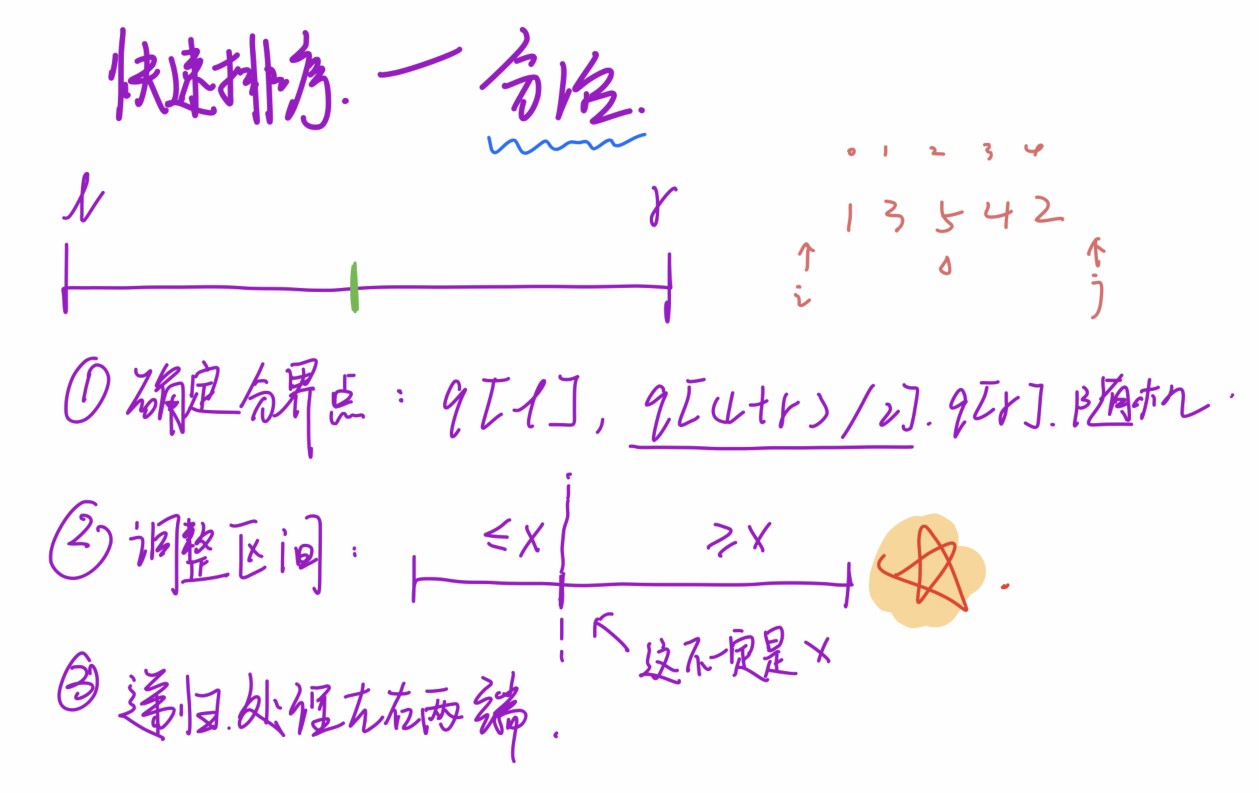 快速排序. — 分治.
l r
0 1 2 3 4
1 3 5 4 2
i j
① 确定分界点: q[l], q[(l+r)/2]. q[r]. 随机.
② 调整区间: ≤x ≥x
这不一定是x
③ 递归.处理左右两端.